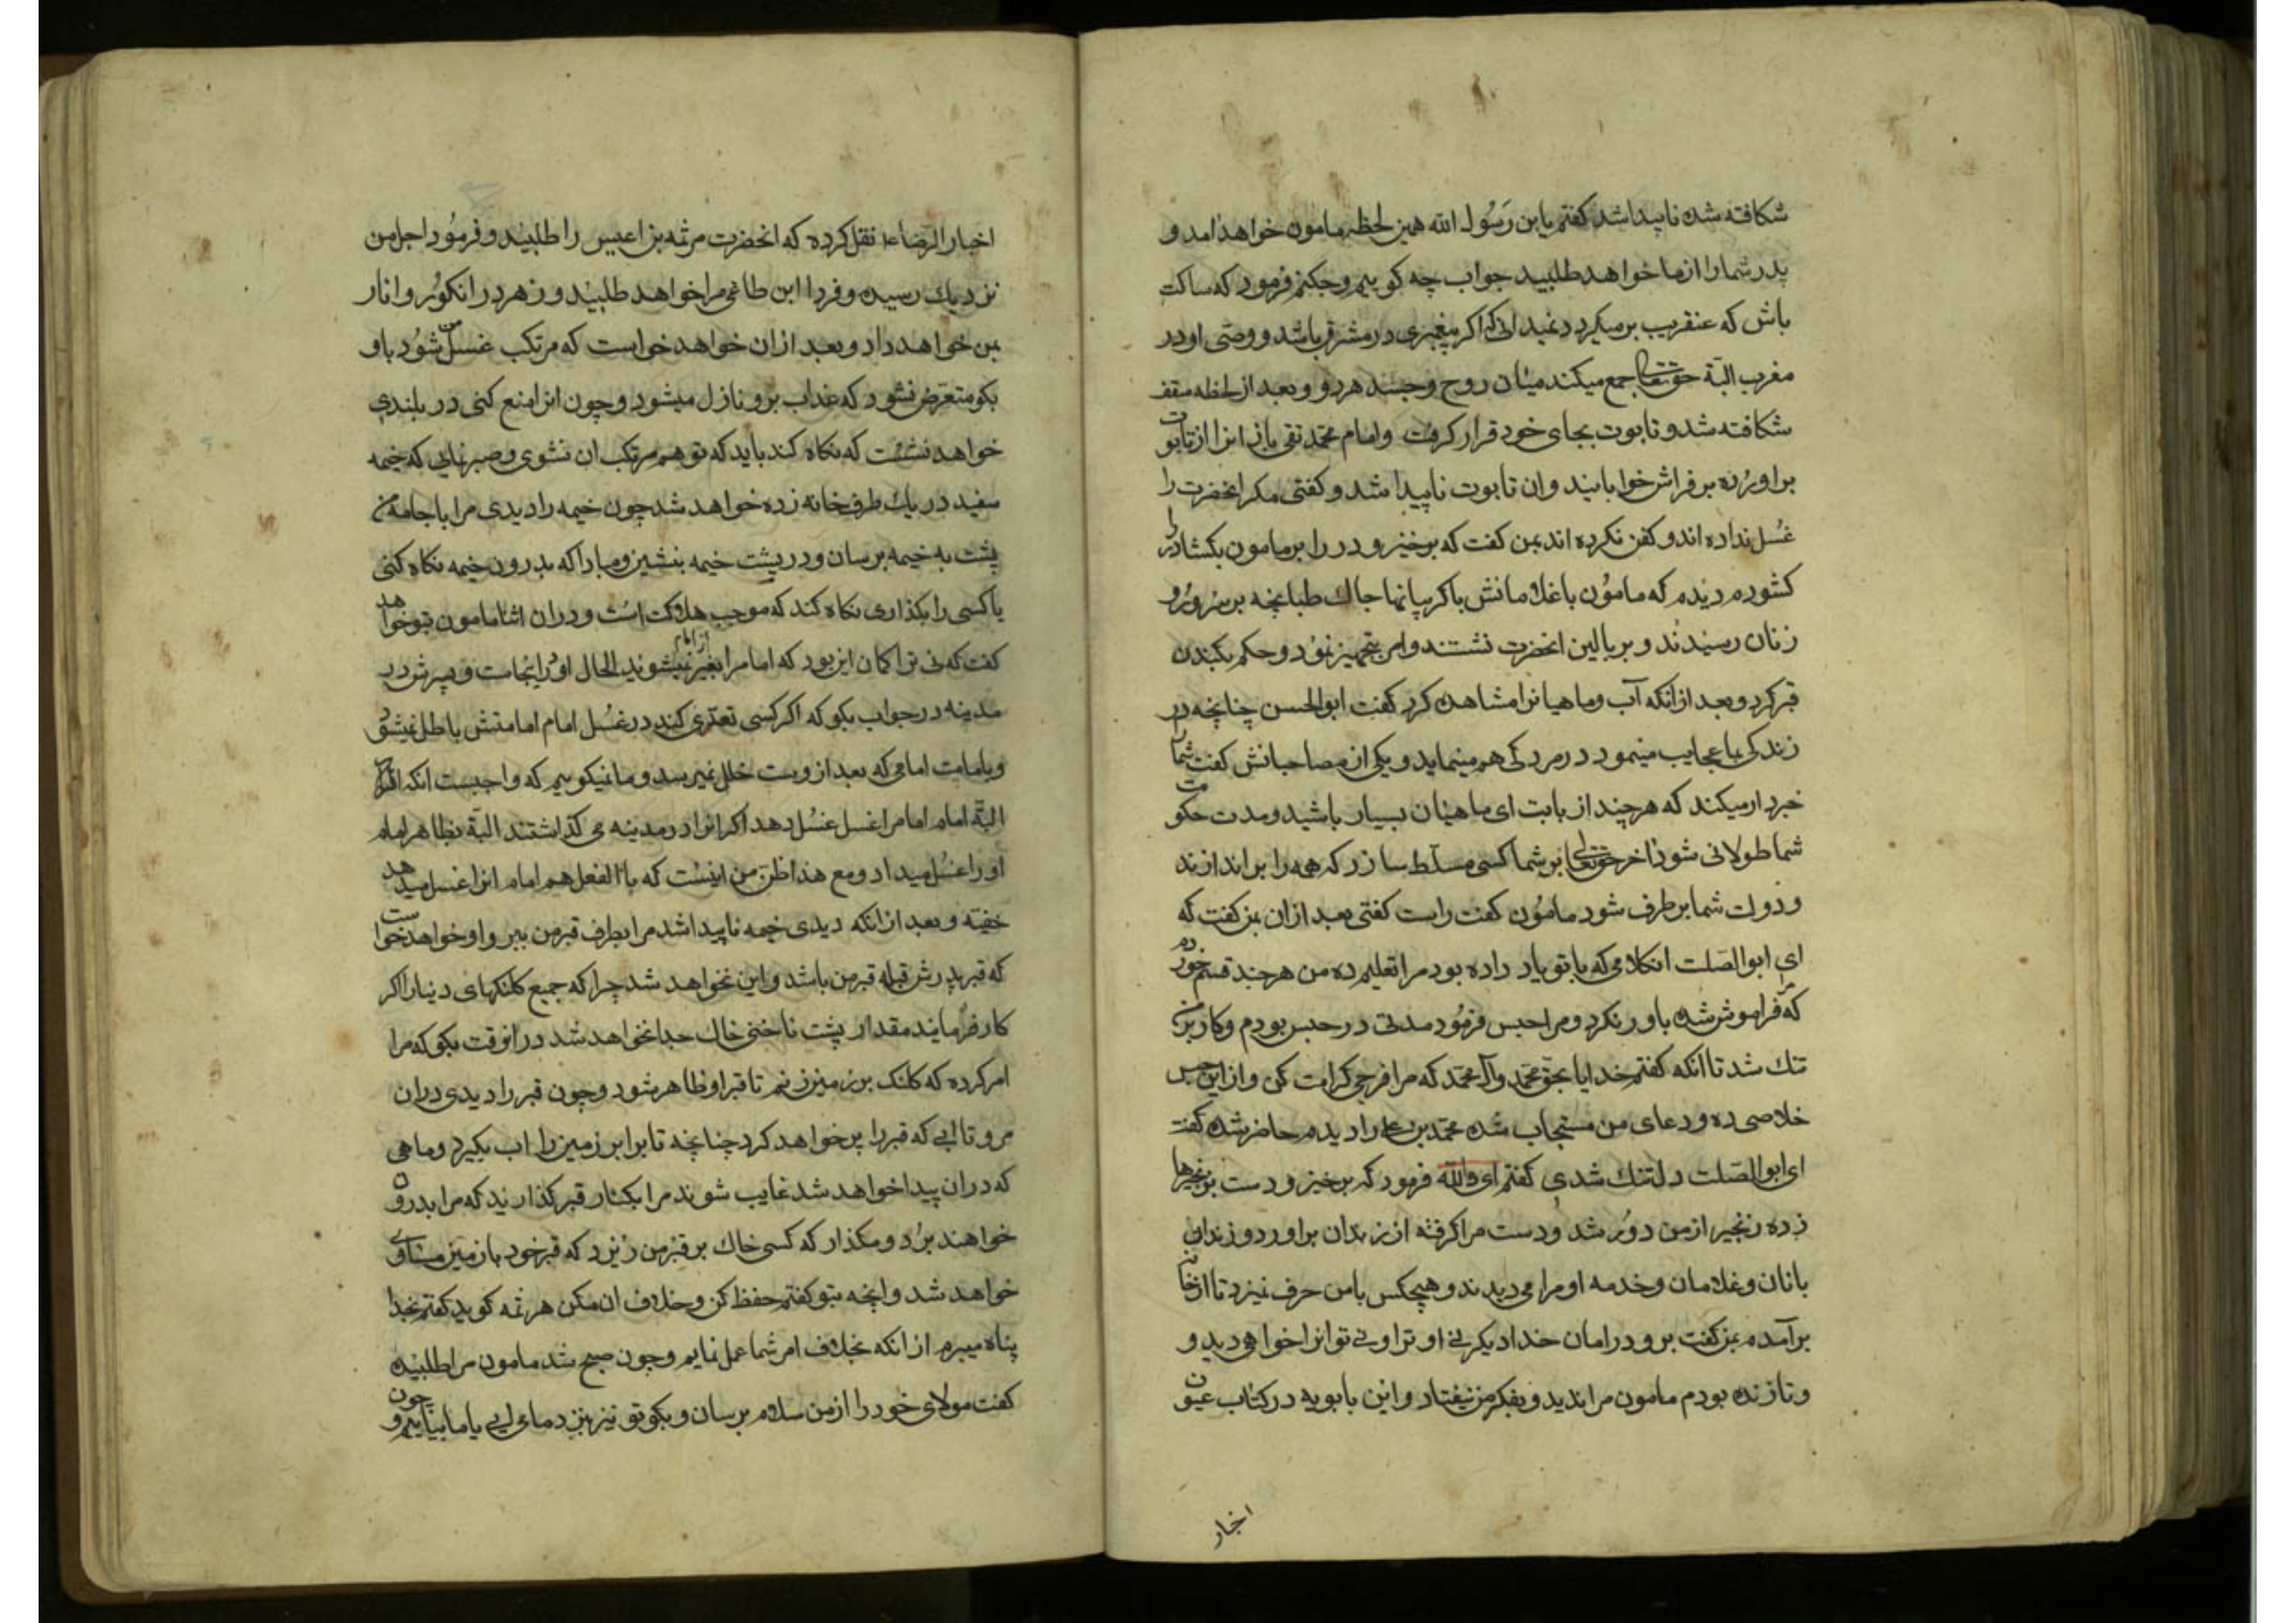 شکافته شده ناپیدا شد کفتم یا بن رَسُول الله همین لحظه مامون خواهد امد و
پدر شما را از ما خواهد طلبید جواب چه کوییم و چکنم فرمود که ساکت
باش که عنقریب برمیکردد نمیدانی که اکر پیغمبری در مشرق باشد و وصی او در
مغرب البتّه حقتعالی جمع میکند میان روح و جسد هر دو و بعد از لحظه سقف
شکافته شد و تابوت بجای خود قرار کرفت و امام محمّد تقی باز انرا از تابوت
براورده بر فراش خوابانید و ان تابوت ناپیدا شد و کفتی مکر انحضرت را
غسُل نداده اند و کفن نکرده اند بمن کفت که برخیز و در را بر مامون بکشا در را
کشودم دیدم که مامُون با غلامانش با کریبانها چاک طبانچه بر سر و رُو
زنان رسیدند و بر بالین انحضرت نشتند و امر بتجهیز نمُود و حکم بکندن
قبر کرد و بعد ازانکه آب و ماهیانرا مشاهده کرد کفت ابوالحسن چنانچه در
زندکی بما عجایب مینمود در مردکی هم مینماید و یکی از مصاحبانش کفت شما را
خبردار میکند که هرچند از بابت ای ماهیان بسیار باشید و مدت حکومت
شما طولانی شود اخر حقتعالی بر شما کسی مسلّط سازد که همه را براندازند
و دولت شما برطرف شود مامُون کفت راست کفتی بعد ازان بمن کفت که
ای ابوالصَلت انکلامی که با تو یاد داده بود مرا تعلیم ده من هرچند قسم خوردم
که فراموش شده باور نکرد و مرا حبس فرمُود مدتی در حبس بودم و کار بر من
تنک شد تا انکه کفتم خدایا بحق محمّد و آل محمّد که مرا فرجی کرامت کن و ازاین حبس
خلاصی ده و دعای من مستجاب شده محمّد بن علی را دیدم حاضر شده کفت
ای ابوالصَلت دلتنک شدی کفتم ای والله فرمود که برخیز و دست بر زنجیرها
زده زنجیر از من دوُر شد وُدست مرا کرفته از زندان براورد و زندان
بانان و غلامان و خدمه او مرا می دیدند و هیچکس با من حرف نیزد تا از خانه
برآمدم بمن کفت برو در امان خدا دیکر نه او ترا و نه تو انرا خواهی دید و
و تا زنده بودم مامون مرا ندید و بفکر من نیفتاد و ابن بابویه در کتاب عیون
اخبار
اخبار الرضا ع نقل کرده که انحضرت هرثمه بن اعیس را طلبید و فرمُود اجل من
نزدیک رسیده و فردا این طاغی مرا خواهد طلبید و زهر در انکوُر و انار
بمن خواهد داد و بعد ازان خواهد خواست که مرتکب غسل من شوُد باو
بکو متعرّض نشود که عذاب برو نازل میشود و چون انرا منع کنی در بلندی
خواهد نشست که نکاه کند باید که تو هم مرتکب ان نشوی و صبر نمایی که خیمه
سفید در یک طرف خانه زده خواهد شد چون خیمه را دیدی مرا با جامه من
پشت به خیمه برسان و در پشت خیمه بنشین و مبادا که بدرون خیمه نکاه کنی
یا کسی را بکذاری نکاه کند که موجب هلاکت اسُت و دران اثنا مامون بتو خواهد
کفت که نی ترا کمان این بود که امام را بغیر از امام نمیشوید الحال او در اینجاست و پسرش در
مدینه در جواب بکو که اکر کسی تعدّی کند در غسُل امام امامتش باطل نمیشود
و بامامت امامی که بعد از وست خلل نمیرسد و ما نمیکوییم که واجبست انکه
البتّه امام امام را غسل غسُل دهد اکر انرا در مدینه می کذاشتند البتّه بظاهر امام
او را غسُل میداد و مع هذا ظن من اینسُت که بالفعل هم امام انرا غسل میدهد
خفیه و بعد ازانکه دیدی خیمه ناپیدا شد مرا بطرف قبر من ببر و او خواهد خواست
که قبر پدرش قبله قبر من باشد و این نخواهد شد چرا که جمیع کلنکهای دنیا را اکر
کار فرمایند مقدار پشت ناخنی خاک جدا نخواهد شد درانوقت بکو که مرا
امر کرده که کلنک بر زمین زنم تا قبر او ظاهر شود و چون قبر را دیدی دران
مرو تا ابی که قبر را پر خواهد کرد چنانچه تا برابر زمین را اب بکیرد و ماهی
که دران پیدا خواهد شد غایب شوند مرا بکنار قبر کذارند که مرا بدرون
خواهند برُد و مکذار که کسی خاک بر قبر من ریزد که قبر خود بازمین مساوی
خواهد شد و انچه بتو کفتم حفظ کن و خلاف ان مکن هرثمه کوید کفتم بخدا
پناه میبرم ازانکه بخلاف امر شما عمل نمایم و چون صبح شد مامون مرا طلبیده
کفت مولای خود را از من سلام برسان و بکو تو نیز بنزد ما می ایی یا ما بیاییم و چون